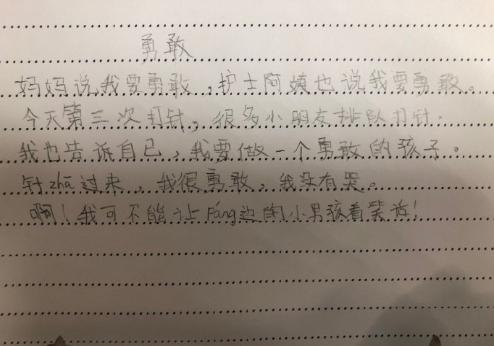 勇敢
妈妈说我要勇敢，护士阿姨也说我要勇敢。
今天第三次打针，很多小朋友排队打针.
我也告诉自己，我要做一个勇敢的孩子。
针zhā过来，我很勇敢，我没有哭。
啊！我可不能让Páng边的小男孩看笑话！